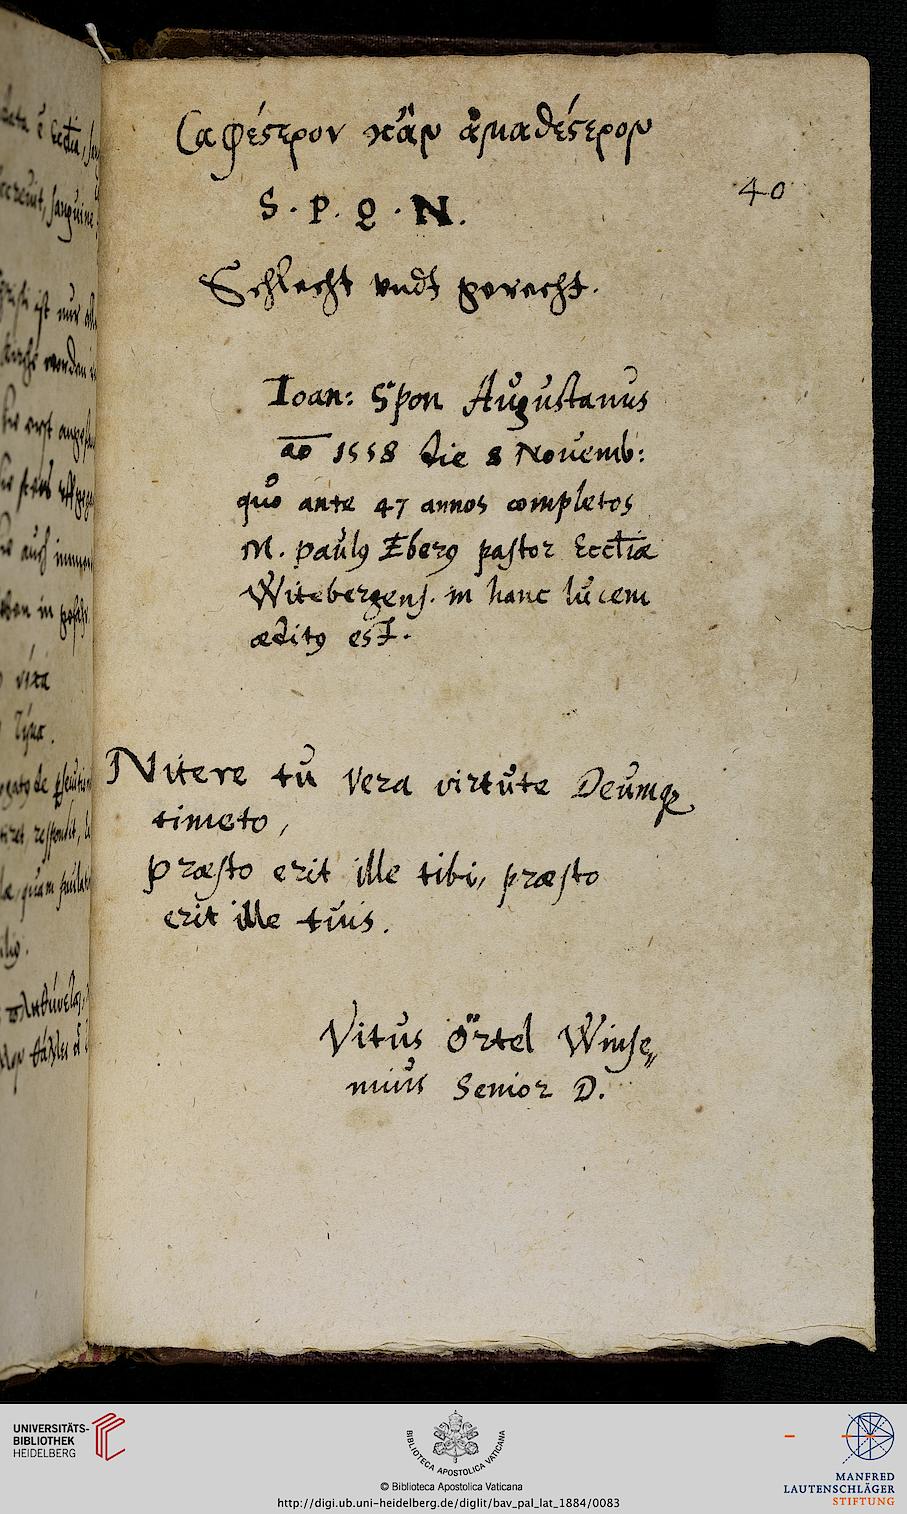 Σαφέστερον κἂν ἀμαθέστερον
40
S . P . Q . N .
Schlecht vndt gerecht .
Ioan : Spon Augustanus
ao 1558 die 8 Nouemb :
quo ante 47 annos completos
M . Paulꝰ Eberꝰ pastor Eccłiæ
Witebergens . in hanc lucem
æditꝰ est .
Nitere tu vera virtute Deumqꝫ
timeto ,
præsto erit ille tibi , præsto
erit ille tuis .
Vitus Örtel Winse„
mius Senior D .
UNIVERSITÄTS-
BIBLIOTHEK
HEIDELBERG
BIBLIOTECA APOSTOLICA VATICANA
© Biblioteca Apostolica Vaticana
http://digi.ub.uni-heidelberg.de/diglit/bav_pal_lat_1884/0083
MANFRED
LAUTENSCHLÄGER
STIFTUNG